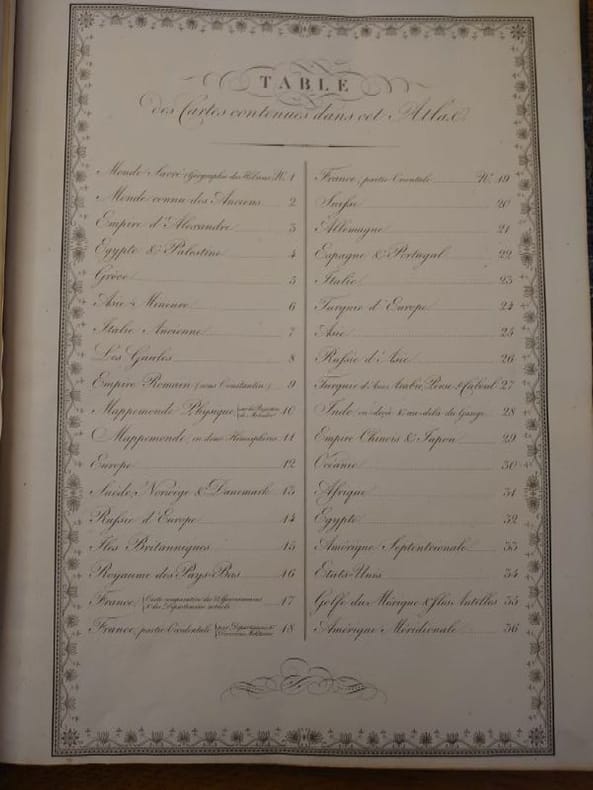 TABLE
des Cartes contenues dans cet Atlas
Monde Sacré (Géographie des Hébreux) N.º 1
Monde connu des Anciens 2
Empire d'Alexandre 3
Egypte & Palestine 4
Grèce 5
Asie Mineure 6
Italie Ancienne 7
Les Gaules 8
Empire Romain (sous Constantin) 9
Mappemonde Physique 10
Mappemonde, en deux Hémisphères 11
Europe 12
Suède, Norwège & Danemark 13
Russie d'Europe 14
Iles Britanniques 15
Royaume des Pays-Bas 16
France, Carte comparative des 32 Gouvernemens & des Départemens actuels 17
France, partie Occidentale par Départemens & Divisions Militaires 18
France, partie Orientale N.º 19
Suisse 20
Allemagne 21
Espagne & Portugal 22
Italie 23
Turquie d'Europe 24
Asie 25
Russie d'Asie 26
Turquie d'Asie, Arabie, Perse & Caboul 27
Inde en-deçà & au-delà du Gange 28
Empire Chinois & Japon 29
Océanie 30
Afrique 31
Egypte 32
Amérique Septentrionale 33
Etats-Unis 34
Golfe du Mexique & Iles Antilles 35
Amérique Méridionale 36